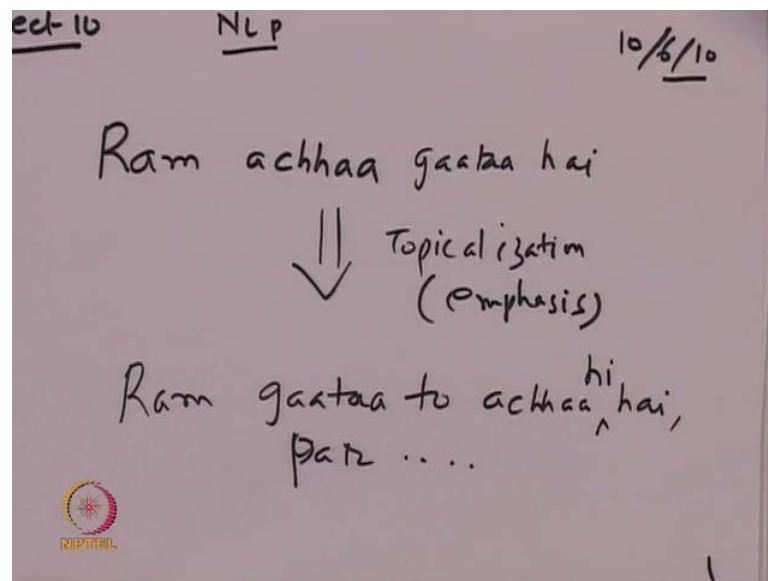 ect-10 NLP 10/6/10
Ram achhaa gaataa hai
Topicalization
(emphasis)
Ram gaataa to achhaa hi hai,
par ....
NPTEL